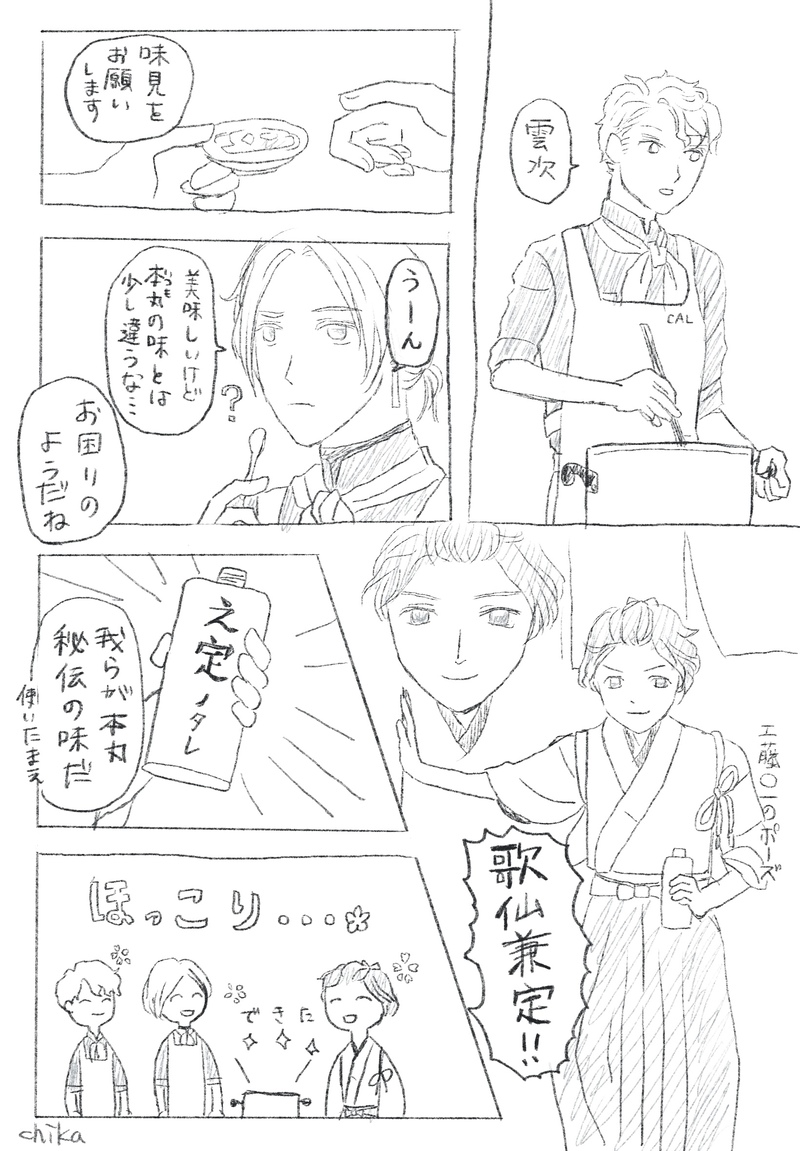 雲次
CAL
味見を
お願い
します
うーん
美味しいけど
本丸の味とは
うち
少し違うな…
?
お困りの
ようだね
工藤〇一のポーズ
歌仙兼定!!
之定ノタレ
我らが本丸
秘伝の味だ
使いたまえ
ほっこり...
できた
chika